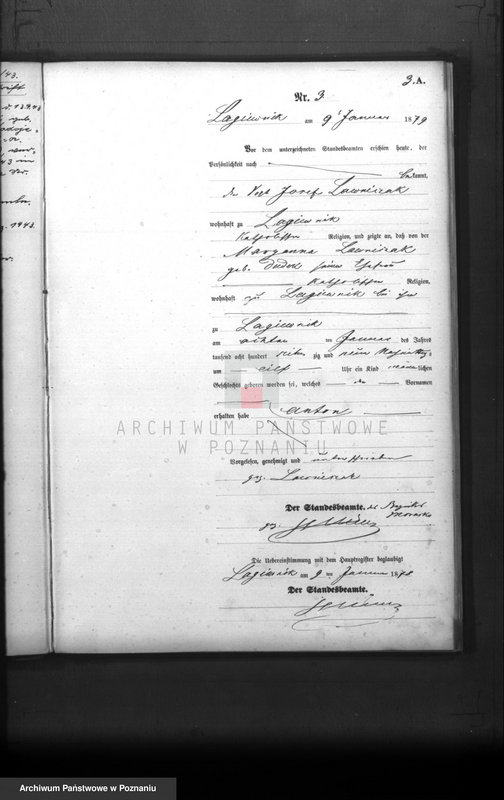 3.A.
Nr. 3
Lagiewnik am 9t Januar 1879
Vor dem unterzeichneten Standesbeamten erschien heute, der
Persönlichkeit nach
bekannt,
der Vogt Josef Lawniczak
wohnhaft zu Lagiewnik
katholischer Religion, und zeigte an, daß von der
Maryanna Lawniczak
geb. Dudek seine Ehefrau
katholischer Religion,
wohnhaft zu Lagiewnik bei ihm
zu Lagiewnik
am achten im Januar des Jahres
tausend acht hundert siebenzig und neun Nachmittags
um eilf Uhr ein Kind männlichen
Geschlechts geboren worden sei, welches den Vornamen
Anton
erhalten habe
ARCHIWUM PAŃSTWOWE
W POZNANIU
Vorgelesen, genehmigt und unterschrieben
gez. Lawniczak
Der Standesbeamte. des Bezirks
gez.
Die Uebereinstimmung mit dem Hauptregister beglaubigt
Lagiewnik am 9 ten Januar 187
Der Standesbeamte.
43.
1943.
Archiwum Państwowe w Poznaniu